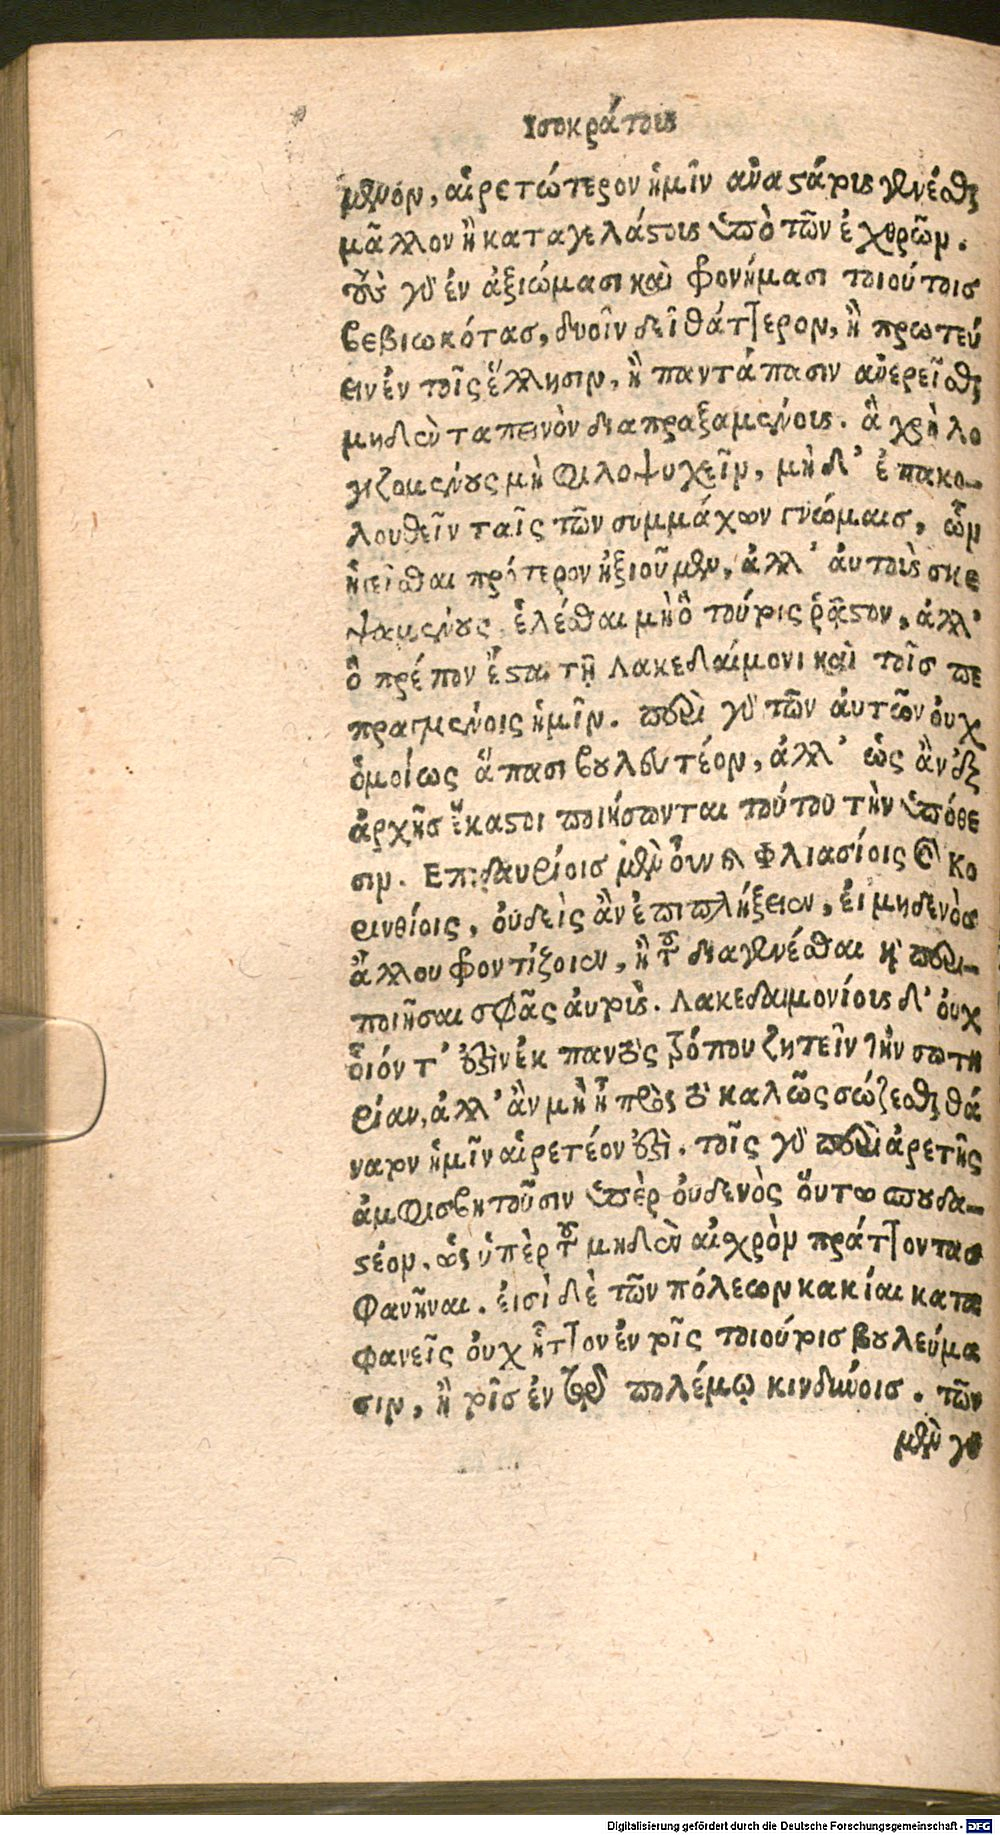 Ισοκράτους
μένον, αἱρετώτερον ἡμῖν ἀναστάτοις γενέσθαι
μᾶλλον ἢ καταγελάστοις ὑπὸ τῶν ἐχθρῶν.
τοὺς γὰρ ἐν ἀξιώμασι καὶ φρονήμασι τοιούτοις
βεβιωκότας, δυοῖν δεῖ θάττερον, ἢ πρωτεύ
ειν ἐν τοῖς ἕλλησιν, ἢ παντάπασιν ἀνερεῖσθαι
μηδὲν ταπεινὸν διαπραξαμένους. ἃ χρὴ λο
γιζομένους μὴ φιλοψυχεῖν, μὴ δ' ἐπακο-
λουθεῖν ταῖς τῶν συμμάχων γνώμαις, ὧν
ἡγεῖσθαι πρότερον ἠξιοῦμεν, ἀλλ' αὐτοὺς σκε
ψαμένους ἑλέσθαι μὴ ὃ τούτοις ῥᾷστον, ἀλλ'
ὃ πρέπον ἔσται τῇ Λακεδαίμονι καὶ τοῖς πε
πραγμένοις ἡμῖν. περὶ γὰρ τῶν ἀυτῶν ὀυχ
ὁμοίως ἅπασι βουλευτέον, ἀλλ' ὡς ἂν ἐξ
ἀρχῆς ἕκαστοι ποιήσωνται τούτου τὴν ὑπόθε
σιν. Επιδαυρίοις μὲν οὖν καὶ Φλιασίοις καὶ Κο
ρινθίοις, ὀυδεὶς ἂν ἐπιπλήξειεν, ἐι μηδενὸς
ἄλλου φροντίζοιεν, ἢ τοῦ διαγενέσθαι καὶ περι-
ποιῆσαι σφᾶς ἀυτούς. Λακεδαιμονίους δ' ὀυχ
οἷόν τ' ἐστὶν ἐκ παντὸς τρόπου ζητεῖν τὴν σωτη
ρίαν, ἀλλ' ἂν μὴ ᾖ πρὸς τὸ καλῶς σώζεσθαι θά
νατον ἡμῖν αἱρετέον ἐστὶ. τοῖς γὰρ περὶ ἀρετῆς
ἀμφισβητοῦσιν ὑπὲρ ὀυδενὸς ὅυτω σπουδα-
στέον, ὡς ὑπὲρ τοῦ μηδὲν αἰσχρὸν πράττοντας
φανῆναι. ἐισὶ δὲ τῶν πόλεων κακίαι κατα
φανεῖς ὀυχ ἧττον ἐν τοῖς τοιούτοις βουλεύμα
σιν, ἢ τοῖς ἐν τῷ πολέμῳ κινδύνοις. τῶν
μὲν γὰρ
Digitalisierung gefördert durch die Deutsche Forschungsgemeinschaft - DFG